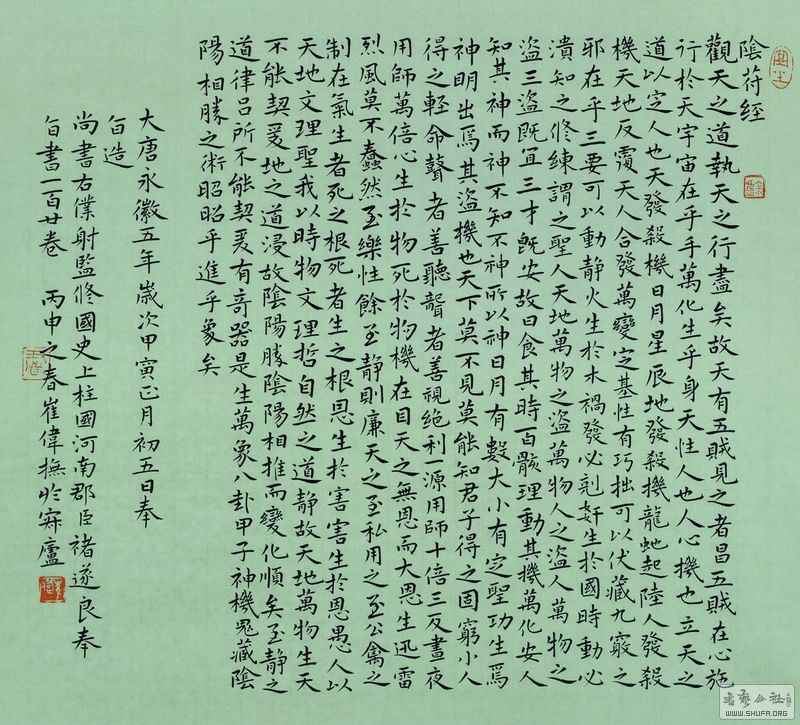 陰符经
觀天之道執天之行盡矣故天有五賊見之者昌五賊在心施
行於天宇宙在乎手萬化生乎身天性人也人心機也立天之
道以定人也天發殺機日月星辰地發殺機龍虵起陸人發殺
機天地反覆天人合發萬變定基性有巧拙可以伏藏九竅之
邪在乎三要可以動静火生於木禍發必剋奸生於國時動必
潰知之修練謂之聖人天地萬物之盗萬物人之盗人萬物之
盗三盗既宜三才既安故曰食其時百骸理動其機萬化安人
知其神而神不知不神所以神日月有數大小有定聖功生焉
神明出焉其盗機也天下莫不見莫能知君子得之固窮小人
得之軽命瞽者善聽聾者善視絶利一源用師十倍三反晝夜
用師萬倍心生於物死於物機在目天之無恩而大恩生迅雷
烈風莫不蠢然至樂性餘至静則廉天之至私用之至公禽之
制在氣生者死之根死者生之根恩生於害害生於恩愚人以
天地文理聖我以時物文理哲自然之道静故天地萬物生天
不能契爰地之道浸故陰陽勝陰陽相推而變化順矣至静之
道律吕所不能契爰有奇器是生萬象八卦甲子神機鬼藏陰
陽相勝之術昭昭乎進乎象矣
大唐永徽五年歲次甲寅正月初五日奉
旨造
尚書右僕射監修國史上柱國河南郡臣褚遂良奉
旨書一百廿卷 丙申之春崔偉撫於寐廬
書藝公社
WWW.SHUFA.ORG